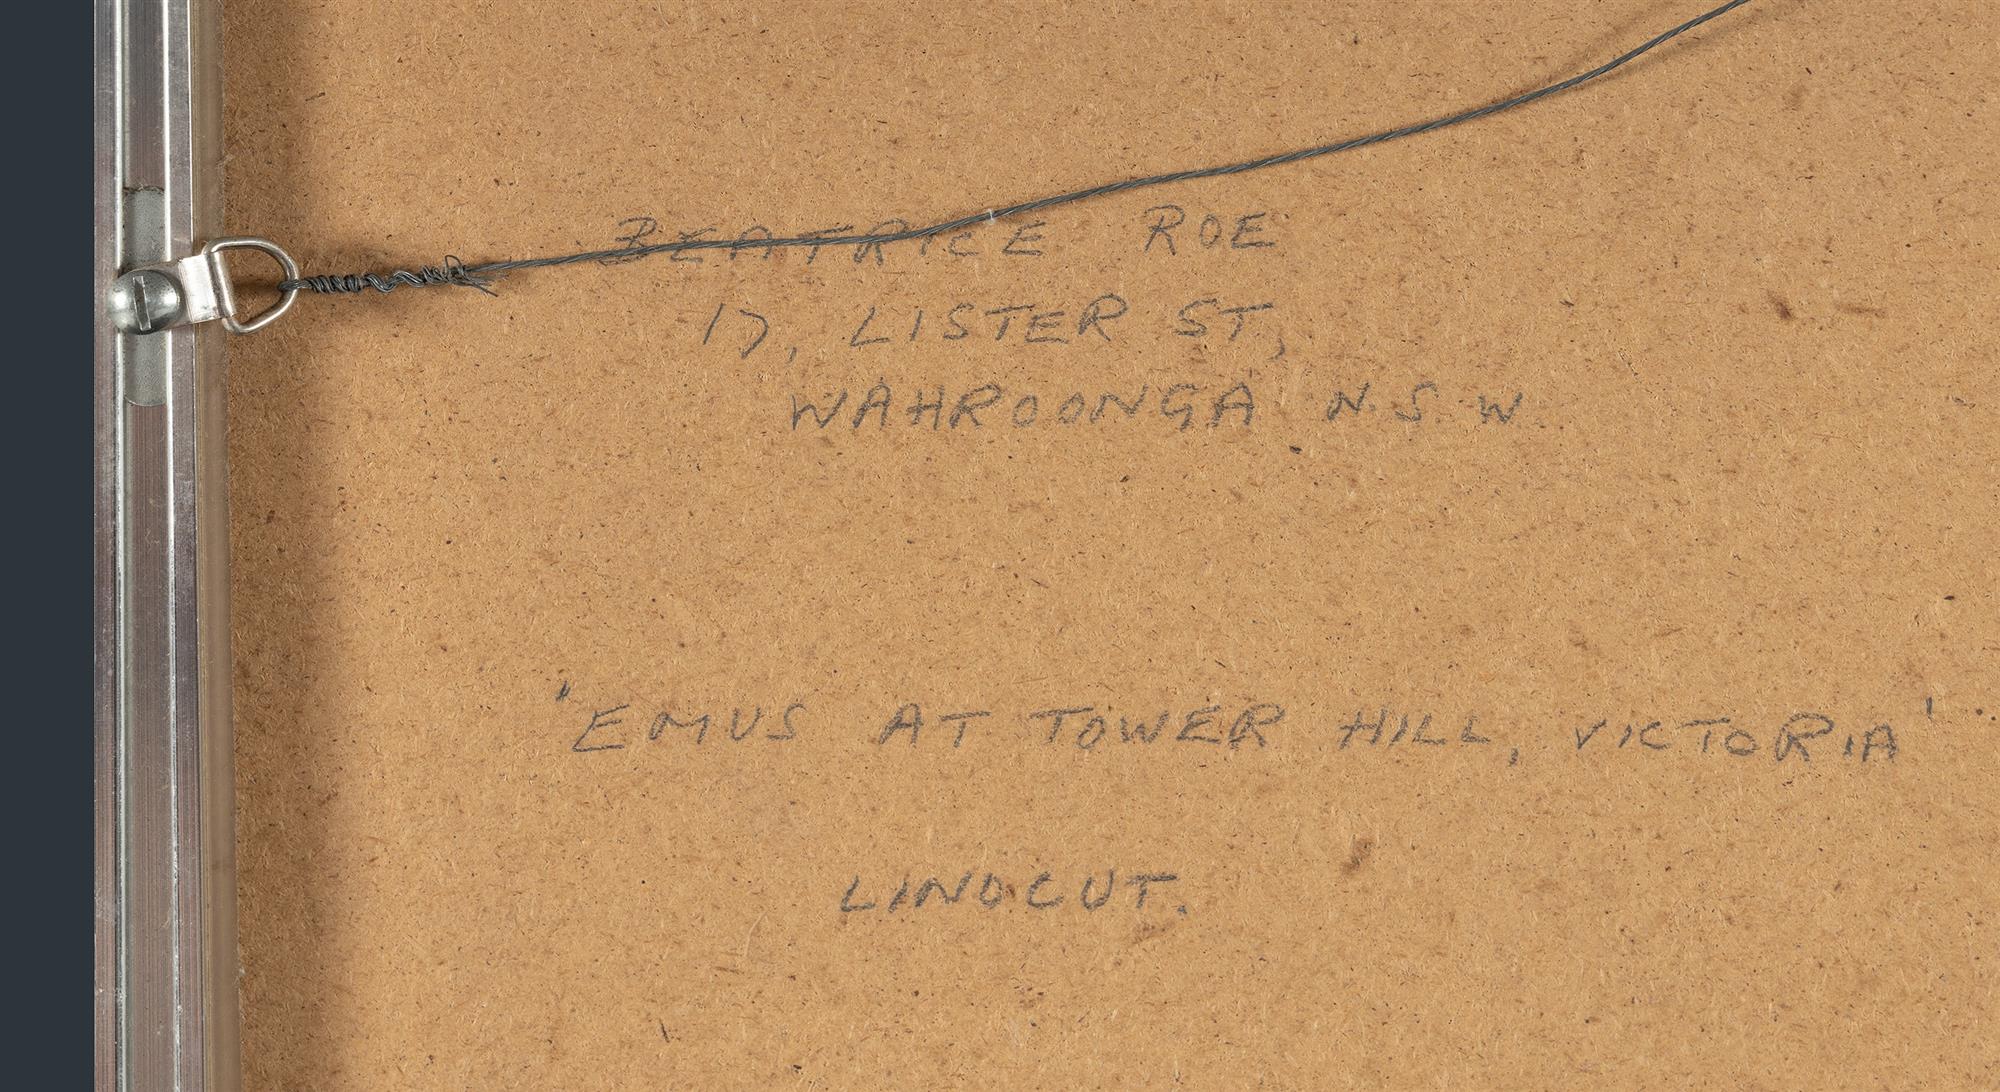 BEATRICE ROE
17, LISTER ST,
WAHROONGA N.S.W.
"EMUS AT TOWER HILL, VICTORIA'
LINOCUT.